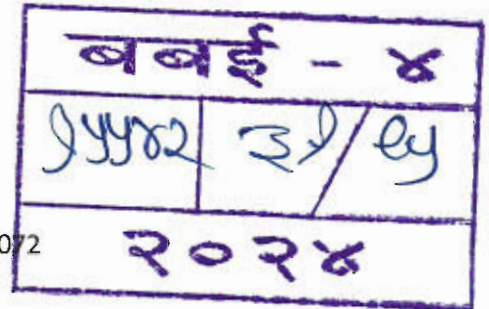 बबई - ४
१५५४२
072 २०२४